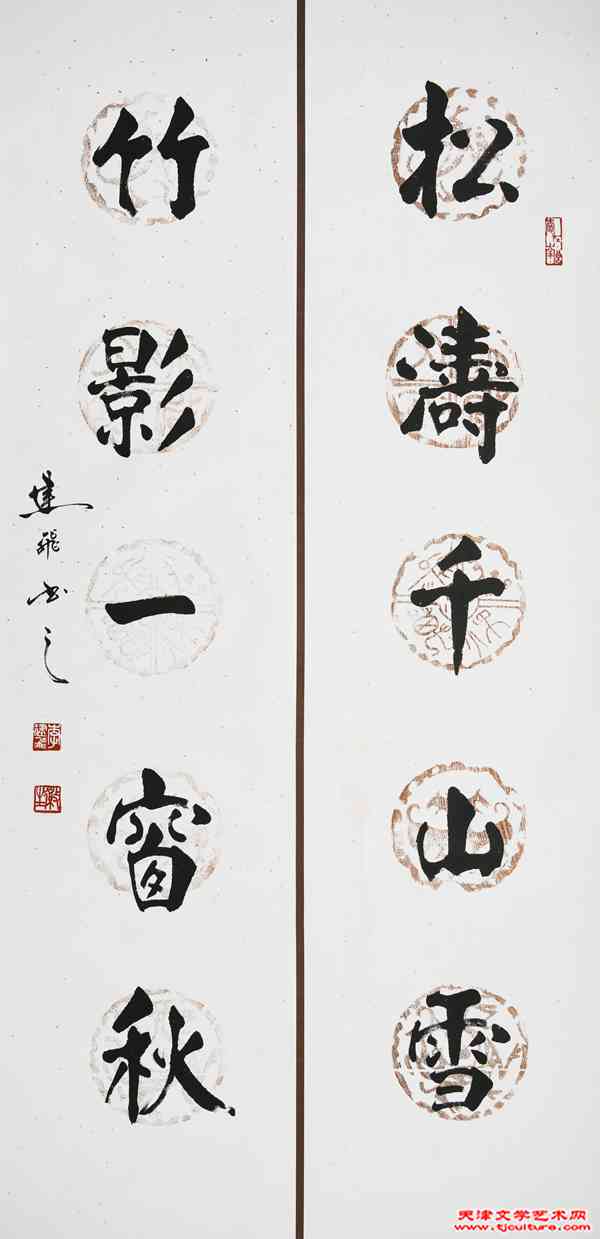 松濤千山雪
竹影一窗秋
建飛书之
天津文学艺术网
www.tjculture.com